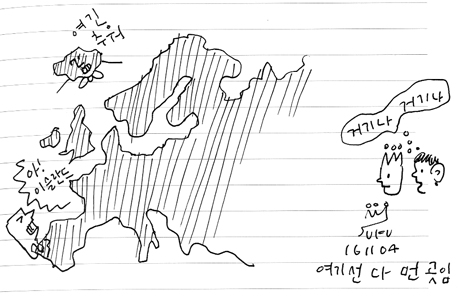 여긴
추워
아!
이슬란드
거기나 거기나
161104
여기선 다 먼 곳임